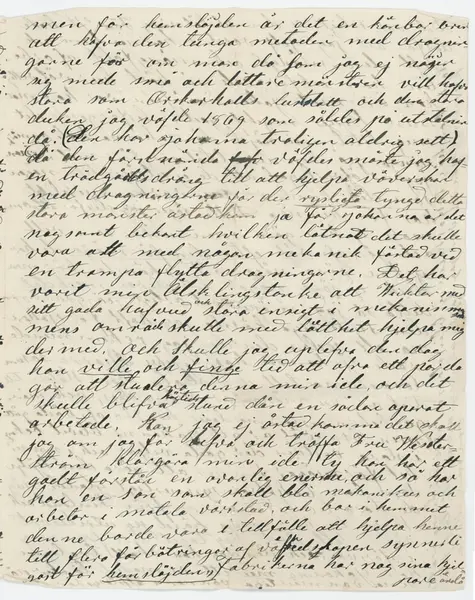 men för hemslöjden är det en
att hafva den tunga metoden med dragnin
garne för om man då som jag ej nöjer
sig med små och lättare mönster vill hafva
stora som och den stora
duken jag väfde 1869 som såldes på
då (den har Johanna troligen aldrig sett)
då den försvann väfdes måste jag ha
en trädgårdsdräng till att hjelpa väverskan
med dragningarne för den rysliga tyngd detta
stora mönster ja få Johanna är det
nog samt bekant hvilken det skulle
vara att med någon mekanik förstad ved
en trampa flytta dragningarne. Det har
varit min älsklingstanke att Wiktor med
sitt goda hufvud och stora insigt i mekanismm
mens område skulle med lätthet hjelpa mig
dermed, och skulle jag uplefva den dag
han ville och finge tid att ofra ett par da
gar att studera denna min ide, och det
skulle blifva en stund då en sådan operat
arbetade. Kan jag ej åstadkomma det skall
jag om jag får lefva och träffa Fru Wester
ström klargöra min ide, ty hon har ett
godt förstånd en ovanlig energie, och så har
hon en son som skall bli mekanikus och
arbetar i motala varvstad, och bor i hemmet
denne borde vara i tillfälle att hjelpa henne
till flera förbättringar af väfredskapen synnerli
gast för hemslöjden, fabrikerna har nog sina hjel
pare ändå